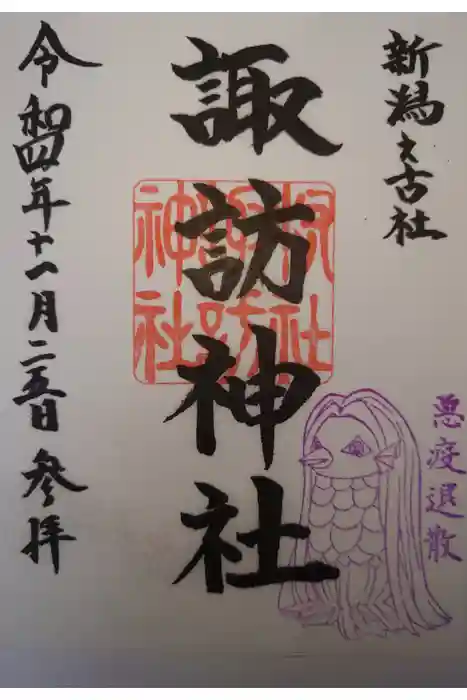 新潟之古社
悪疫退散
諏訪神社
村社
諏訪
神社
令和四年十一月二五日 参拝